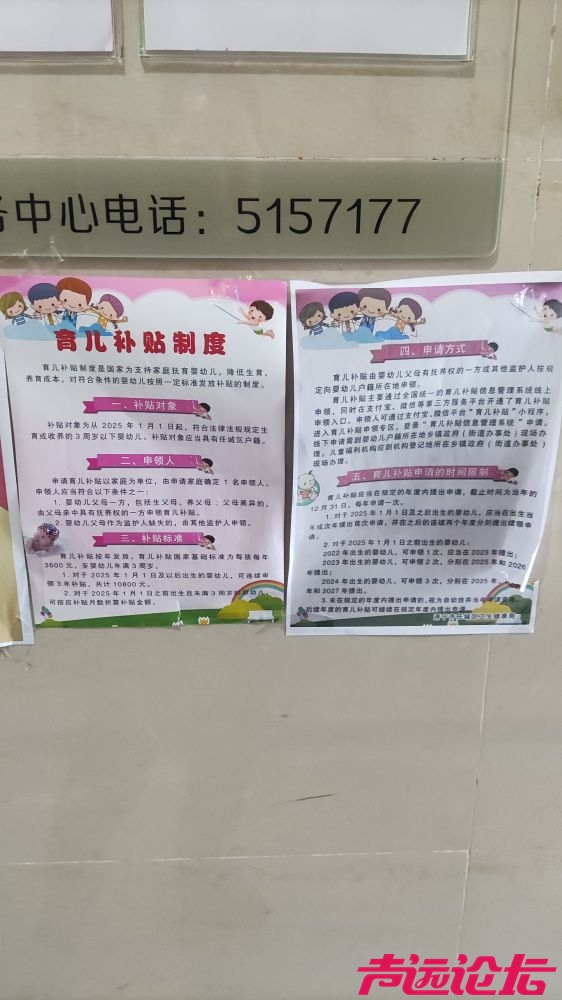 务中心电话：5157177
育儿补贴制度
育儿补贴制度是国家为支持家庭抚育婴幼儿，降低生育、
养育成本，对符合条件的婴幼儿按照一定标准发放补贴的制度。
一、补贴对象
补贴对象为从 2025 年 1 月 1 日起，符合法律法规规定生
育或收养的 3 周岁以下婴幼儿。补贴对象应当具有任城区户籍。
二、申领人
申请育儿补贴以家庭为单位，由申请家庭确定 1 名申领人。
申领人应当符合以下条件之一：
1. 婴幼儿父母一方，包括生父母、养父母；父母离异的，
由父母亲中具有抚养权的一方申领育儿补贴。
2. 婴幼儿父母作为监护人缺失的，由其他监护人申领。
三、补贴标准
育儿补贴按年发放。育儿补贴国家基础标准为每孩每年
3600 元，至婴幼儿年满 3 周岁。
1. 对于 2025 年 1 月 1 日及以后出生的婴幼儿，可连续申
领 3 年补贴，共计 10800 元。
2. 对于 2025 年 1 月 1 日之前出生且未满 3 周岁的婴幼儿，
可按应补贴月数折算补贴金额。
四、申请方式
育儿补贴由婴幼儿父母有抚养权的一方或其他监护人按规
定向婴幼儿户籍所在地申领。
育儿补贴主要通过全国统一的育儿补贴信息管理系统线上
申领，同时在支付宝、微信等第三方服务平台开通了育儿补贴
申领入口。申领人可通过支付宝、微信平台“育儿补贴”小程序，
进入育儿补贴申领专区，登录“育儿补贴信息管理系统”申请。
线下申请需到婴幼儿户籍所在地乡镇政府（街道办事处）现场办
理。儿童福利机构应到机构登记地所在乡镇政府（街道办事处）
现场办理。
五、育儿补贴申请的时间限制
育儿补贴应当在规定的年度内提出申请，截止时间为当年的
12 月 31 日。每年申请一次。
1. 对于 2025 年 1 月 1 日及之后出生的婴幼儿，应当在出生当
年或次年提出首次申请，并在之后的连续两个年度分别提出续领申
请。
2. 对于 2025 年 1 月 1 日之前出生的婴幼儿：
2022 年出生的婴幼儿，可申领 1 次，应当在 2025 年提出；
2023 年出生的婴幼儿，可申领 2 次，分别在 2025 年和 2026
年提出；
2024 年出生的婴幼儿，可申领 3 次，分别在 2025 年、
年和 2027 年提出。
3. 未在规定的年度内提出申请的，视为自动放弃当年申请资
后续年度的育儿补贴可继续在规定年度内提出申请
济宁市任城区卫生健康局
声远论坛